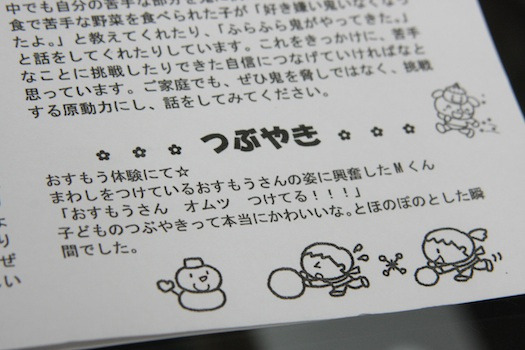 中でも自分の苦手な部分を
食で苦手な野菜を食べられた子が「好き嫌い鬼いなくなっ
たよ。」と教えてくれたり、「ふらふら鬼がやってきた。」
と話をしてくれたりしています。これをきっかけに、苦手
なことに挑戦したりできた自信につなげていければなと
思っています。ご家庭でも、ぜひ鬼を脅しではなく、挑戦
する原動力にし、話をしてみてください。
つぶやき
おすもう体験にて☆
まわしをつけているおすもうさんの姿に興奮したMくん
「おすもうさん　オムツ　つけてる！！！」
子どものつぶやきって本当にかわいいな。とほのぼのとした瞬
間でした。